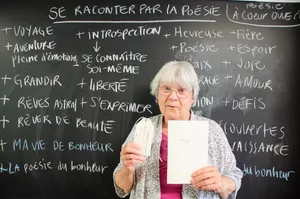 SE RACONTER PAR LA POÉSIE
POÉSIE
À COEUR OUVE
+ VOYAGE
+ AVENTURE
pleine d'émotions
+ GRANDIR
+ RÊVES
+ RÊVER DE BEAUTÉ
+ MA VIE DE BONHEUR
+ LA poésie du bonheur
+ INTROSPECTION
SE CONNAÎTRE
SOI-MÊME
+ LIBERTÉ
+ S'EXPRIMER
+ Heureuse
+ Poésie
+ Fière
+ Espoir
+ Joie
+ AMOUR
+ DÉFIS
OUVERTES
NAISSANCE
du bonheur